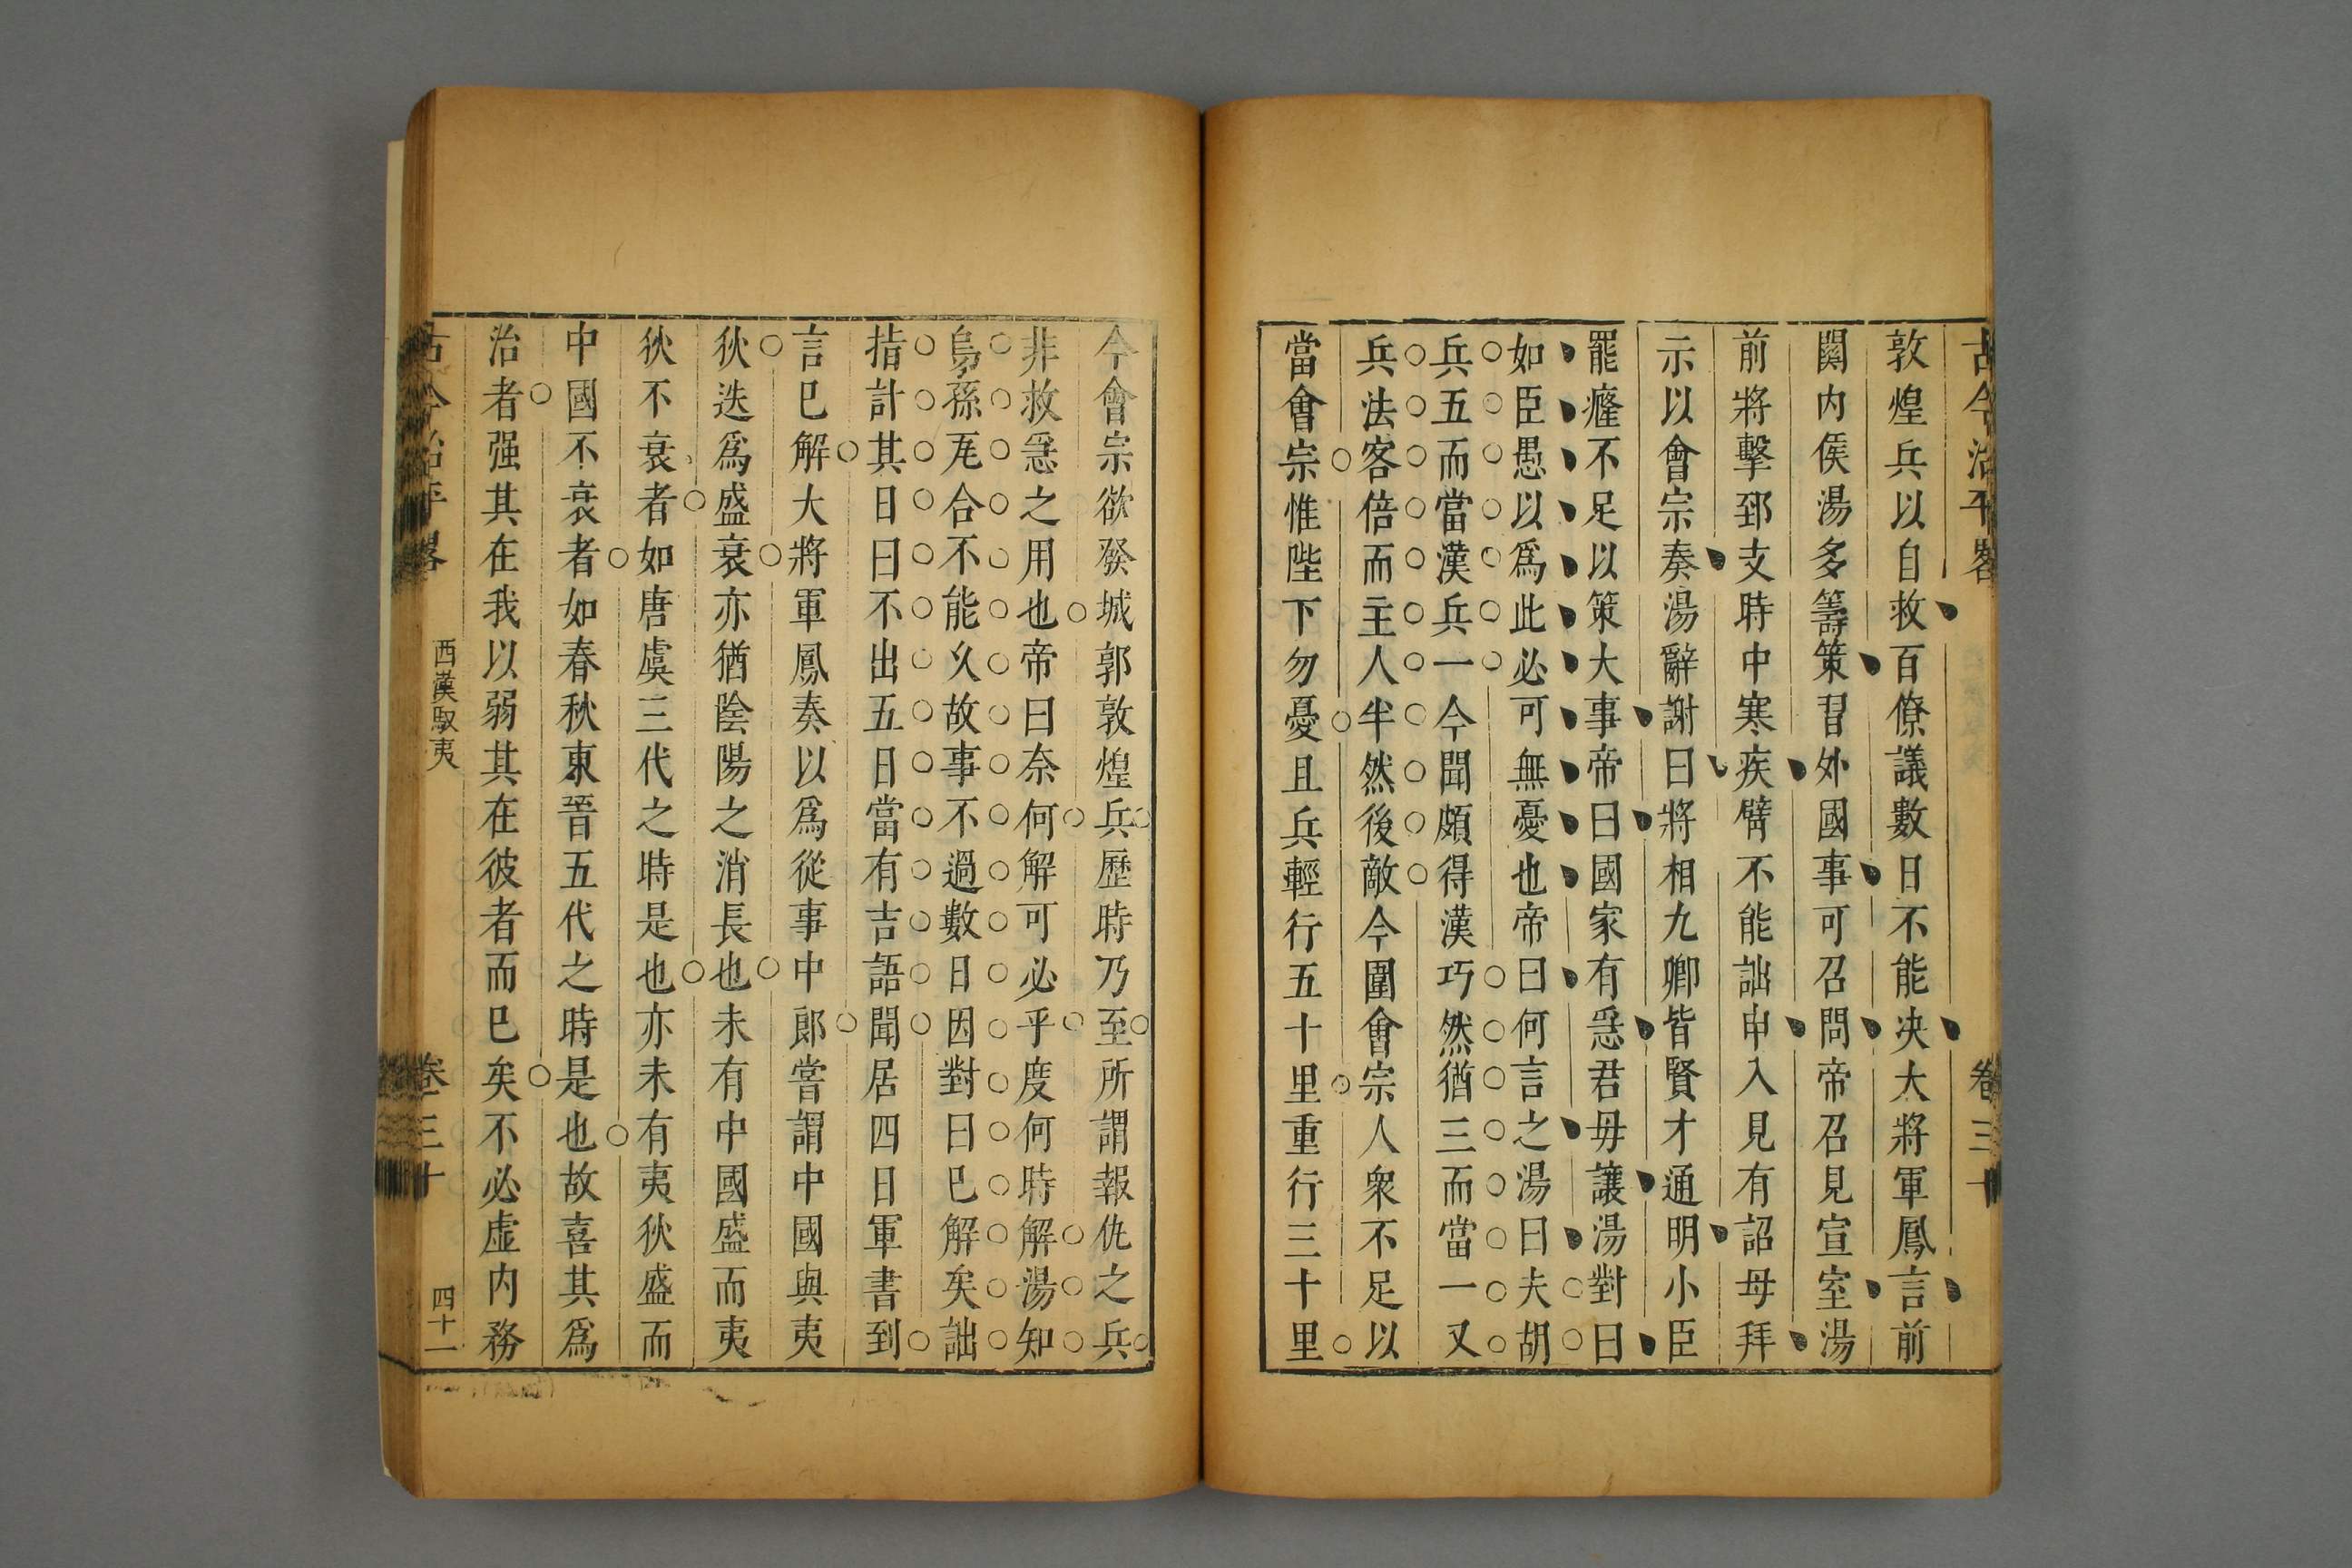 古今治平畧
卷三十
敦煌兵以自救百僚議數日不能决大將軍鳳言前
關内侯湯多籌策習外國事可召問帝召見宣室湯
前將擊郅支時中寒疾臂不能詘申入見有詔毋拜
示以會宗奏湯辭謝曰將相九卿皆賢才通明小臣
罷癃不足以策大事帝曰國家有急君毋讓湯對曰
如臣愚以爲此必可無憂也帝曰何言之湯曰夫胡
兵五而當漢兵一今聞頗得漢巧然猶三而當一又
兵法客倍而主人半然後敵今圍會宗人衆不足以
當會宗惟陛下勿憂且兵輕行五十里重行三十里
今會宗欲發城郭敦煌兵歷時乃至所謂報仇之兵
非救急之用也帝曰奈何解可必乎度何時解湯知
烏孫瓦合不能久故事不過數日因對曰已解矣詘
指計其日曰不出五日當有吉語聞居四日軍書到
言已解大將軍鳳奏以爲從事中郎嘗謂中國與夷
狄迭爲盛衰亦猶陰陽之消長也未有中國盛而夷
狄不衰者如唐虞三代之時是也亦未有夷狄盛而
中國不衰者如春秋東晉五代之時是也故喜其爲
治者强其在我以弱其在彼者而已矣不必虛内務
古今治平畧
西漢馭夷
卷三十
四十一